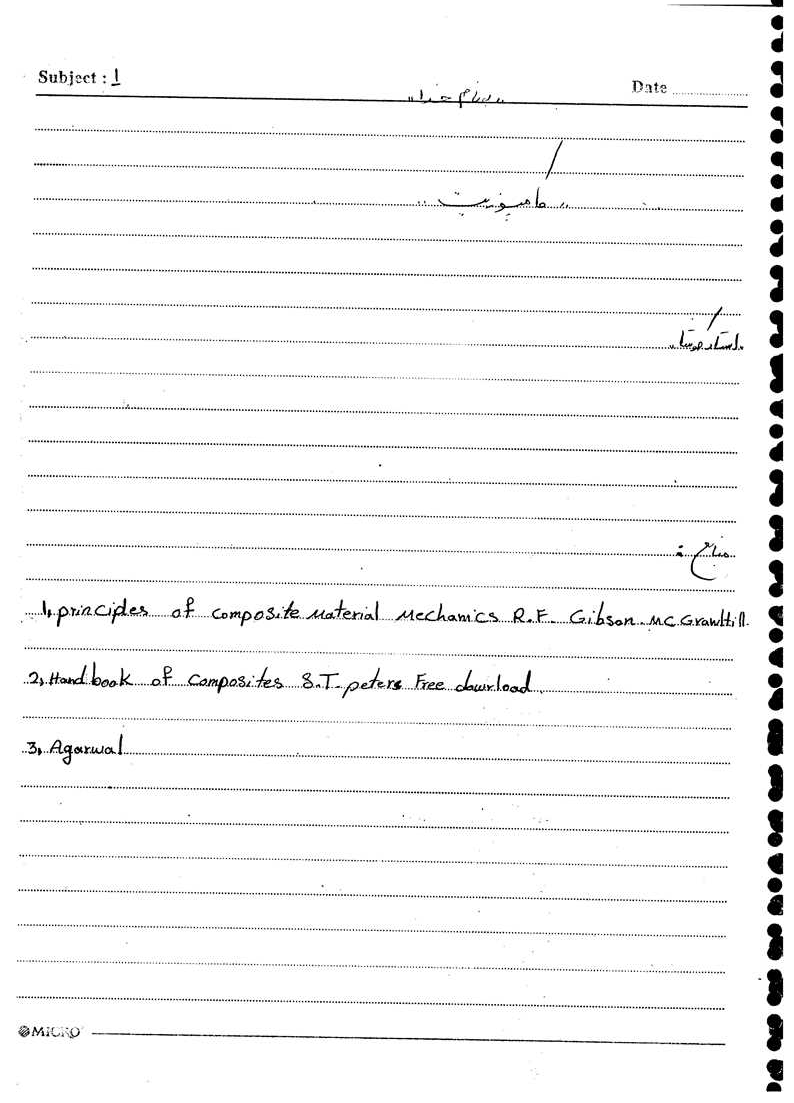 Subject : 1
Date
"بنام خدا"
"کامپوزیت"
استاد
منابع :
1, principles of composite Material Mechanics R.F. Gibson. MC. GrawHill.
2, Hand book of composites S.T. peters Free dowrload.
3, Agarwal
MICRO